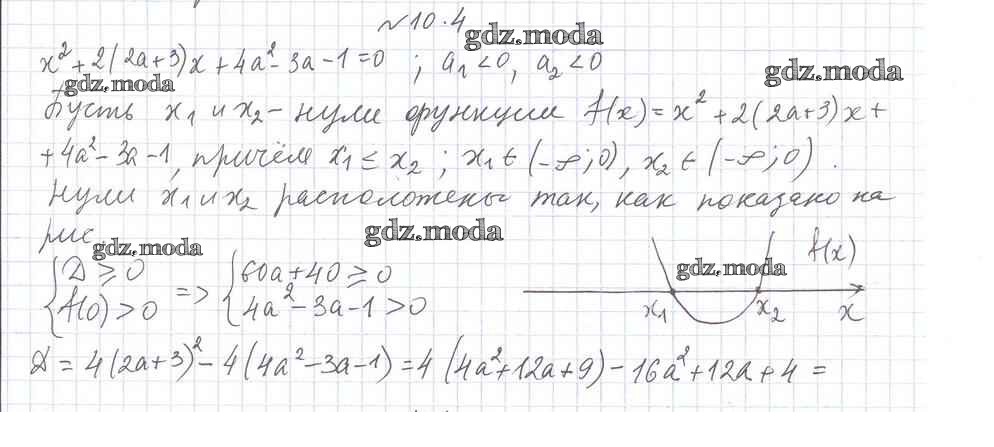 №10.4
gdz.moda
x² + 2(2a+3)x + 4a² - 3a - 1 = 0 ; a₁ < 0, a₂ < 0
gdz.moda
gdz.moda
Пусть x₁ и x₂ - нули функции f(x) = x² + 2(2a+3)x +
+ 4a² - 3a - 1, причём x₁ ≤ x₂ ; x₁ ∈ (-∞; 0), x₂ ∈ (-∞; 0).
Нули x₁ и x₂ расположены так, как показано на
рис.
gdz.moda
gdz.moda
{ D ≥ 0 => { 60a + 40 ≥ 0
{ f(0) > 0 { 4a² - 3a - 1 > 0
f(x)
gdz.moda
x₁ x₂ x
D = 4(2a+3)² - 4(4a² - 3a - 1) = 4(4a² + 12a + 9) - 16a² + 12a + 4 =